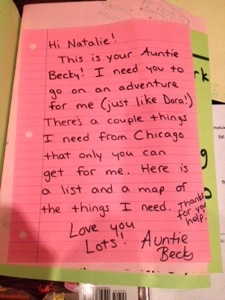 Hi Natalie!
This is your Auntie
Becky! I need you to
go on an adventure
for me (just like Dora!)
There's a couple things
I need from Chicago
that only you can
get for me. Here is
a list and a map of
the things I need.
Thanks
for your
help!
Love you
Lots!
Auntie
Becky
rk